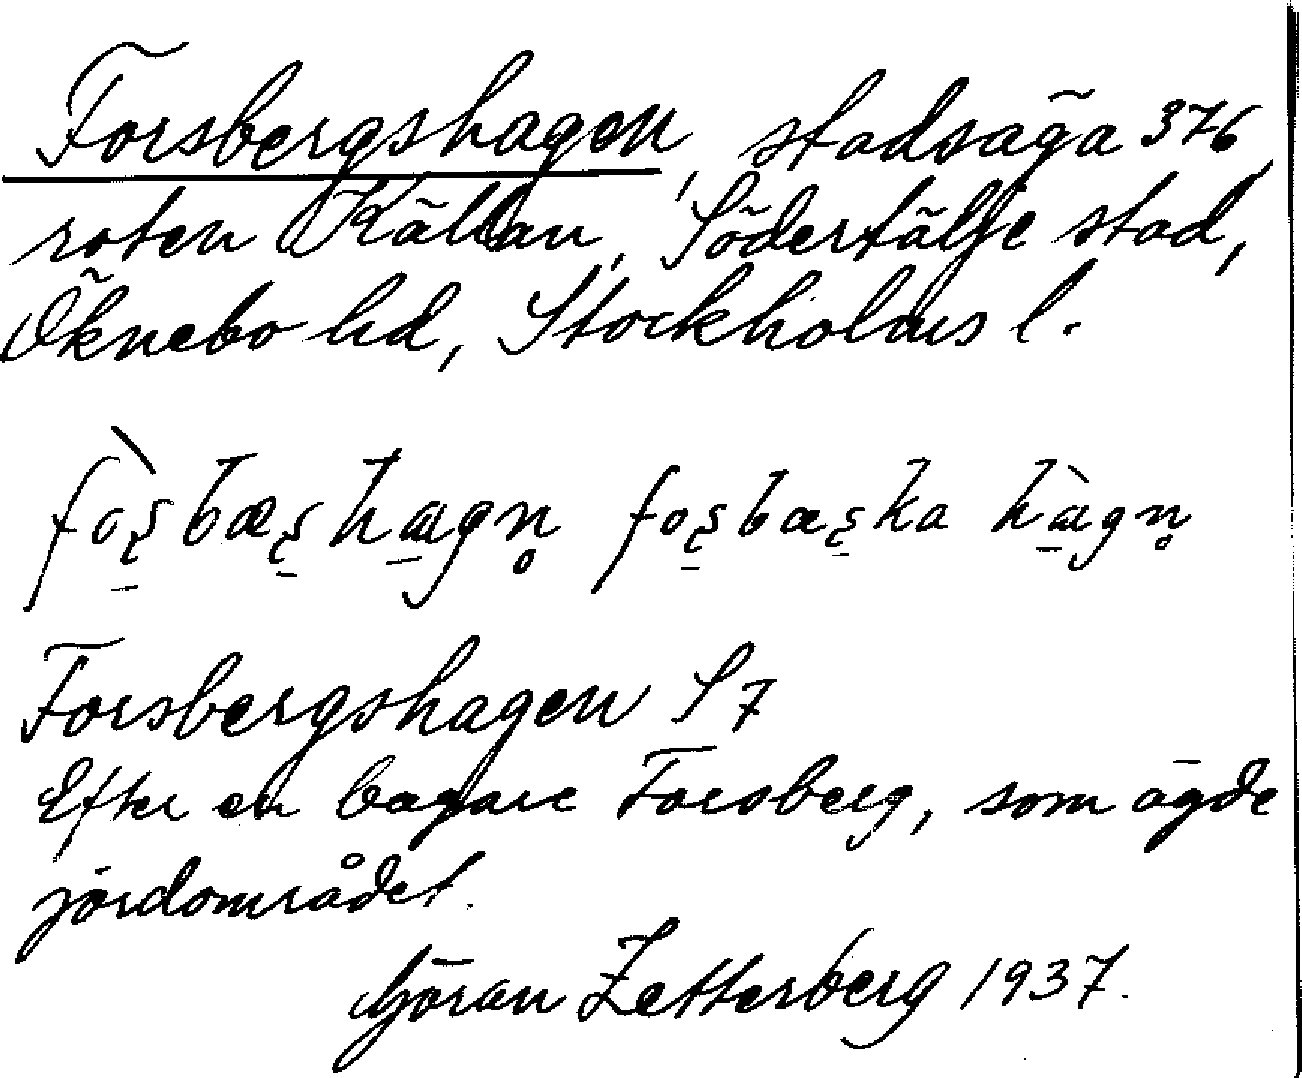 Forsbergshagen, stadsäga 376,
roten Källan, Södertälje stad,
Öknebo hd, Stockholms l.
Forsbergshagen S 7
Efter en bagare Forsberg, som ägde
jordområdet.
Göran Zetterberg 1937.